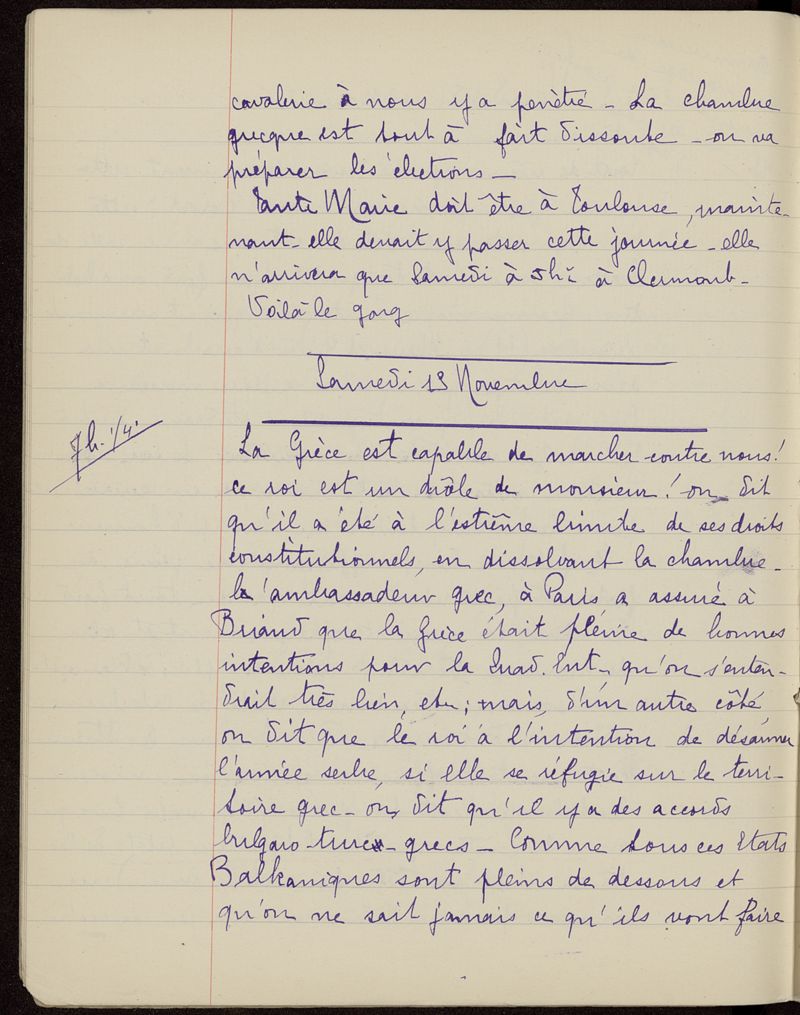 cavalerie à nous y a pénétré - La chambre
grecque est tout à fait dissoute - on va
préparer les élections -
Tante Marie doit être à Toulouse, mainte-
nant - elle devait y passer cette journée - elle
n'arrivera que Samedi à 5h à Clermont -
Voilà le gong
Samedi 13 Novembre
7h. 1/4.
La Grèce est capable de marcher contre nous!
ce roi est un drôle de monsieur! on dit
qu'il a été à l'extrême limite de ses droits
constitutionnels, en dissolvant la chambre -
l'ambassadeur grec, à Paris a assuré à
Briand que la Grèce était pleine de bonnes
intentions pour la Quad. Ent - qu'on s'enten-
drait très bien, etc; mais, d'un autre côté,
on dit que le roi a l'intention de désarmer
l'armée serbe, si elle se réfugie sur le terri-
toire grec - on dit qu'il y a des accords
bulgaro-turc - grecs - Comme tous ces Etats
Balkaniques sont pleins de dessous et
qu'on ne sait jamais ce qu'ils vont faire